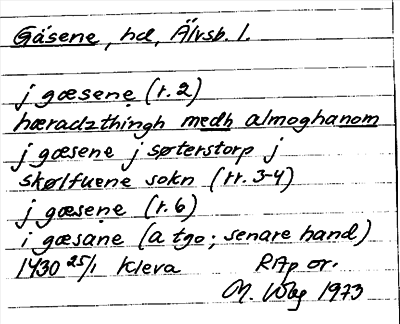 Gäsene, hd, Älvsb. l.
j gæsenę (r. 2)
hæradzthingh medh almoghanom
j gæsene j søterstorp j
skølfuene sokn (rr. 3-4)
j gæsenę (r. 6)
i gæsane (a tgo; senare hand)
1430 25/1 Kleva RAp or.
M. Wbg 1973